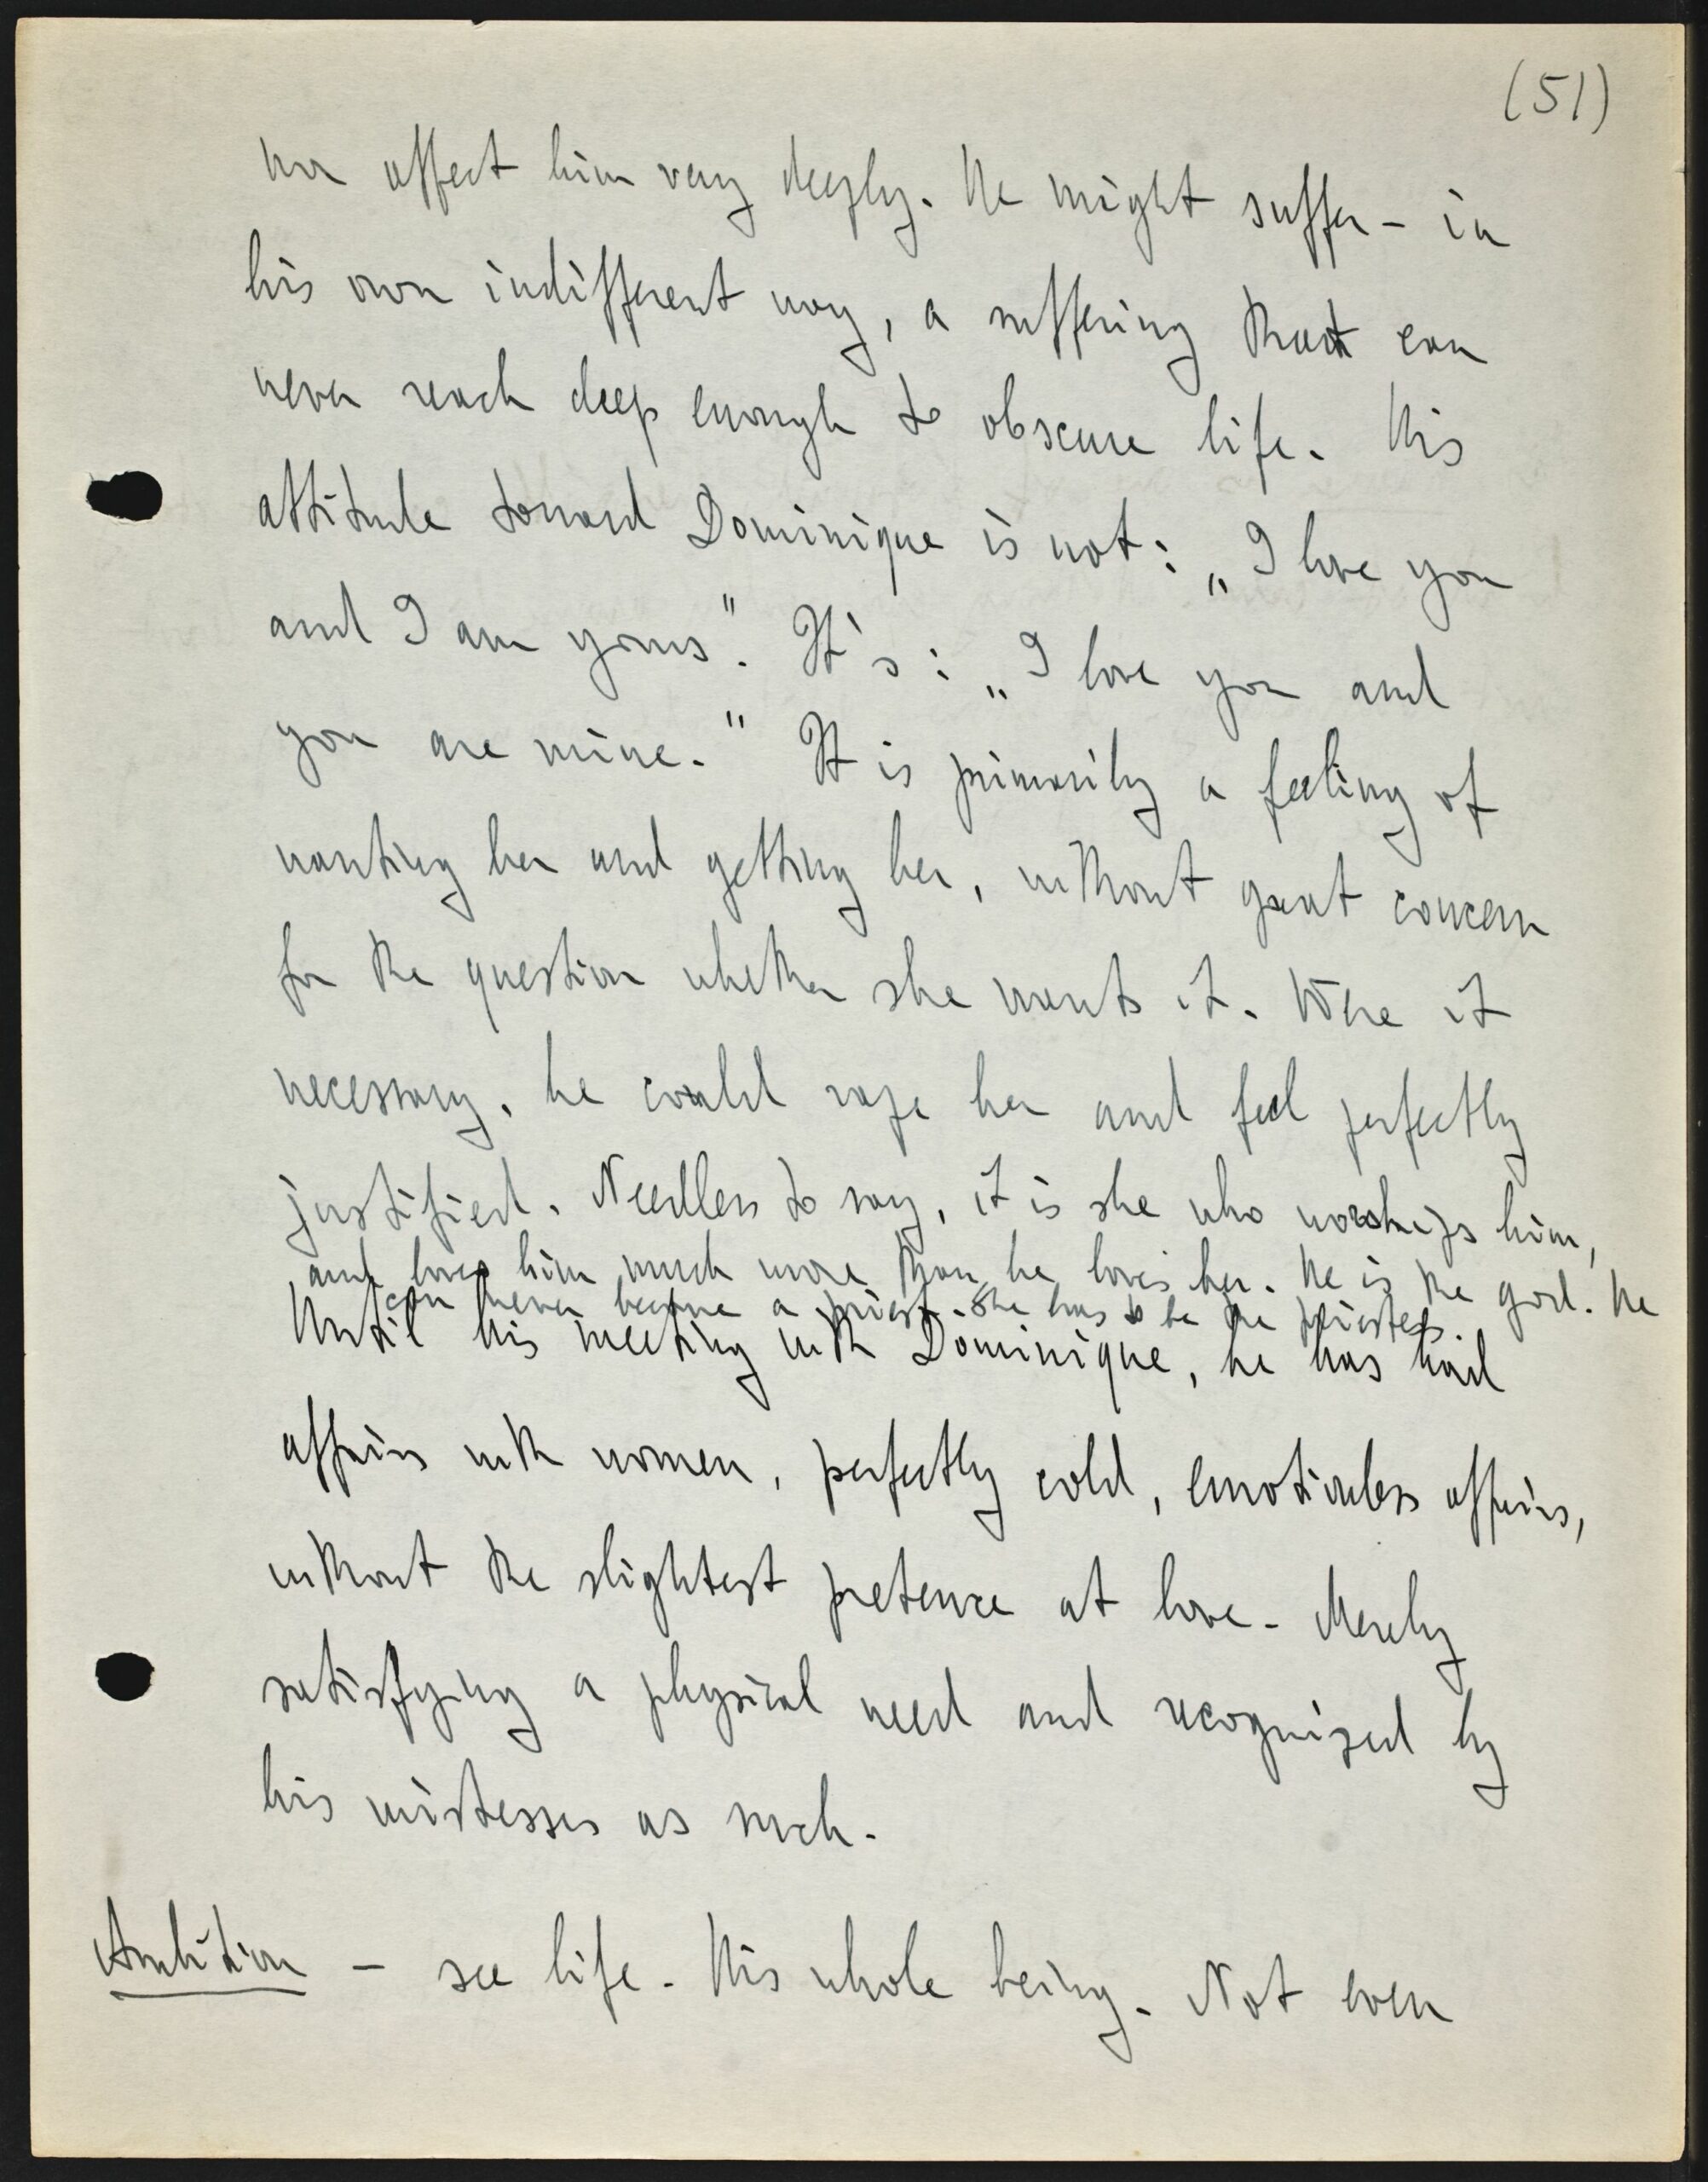 (51)
nor affect him very deeply. He might suffer – in
his own indifferent way, a suffering that can
never reach deep enough to obscure life. His
attitude toward Dominique is not: „I love you
and I am yours". It's: „I love you and
you are mine." It is primarily a feeling of
wanting her and getting her, without great concern
for the question whether she wants it. Were it
necessary, he could rape her and feel perfectly
justified. Needless to say, it is she who worships him,
and loves him much more than he loves her. He is the god. He
can never become a priest. She has to be the priestess.
Until his meeting with Dominique, he has had
affairs with women, perfectly cold, emotionless affairs,
without the slightest pretence at love. Merely
satisfying a physical need and recognized by
his mistesses as such.
Ambition – see life. His whole being. Not even